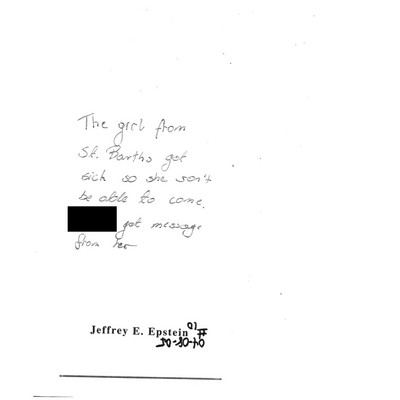 The girl from
St. Barths got
sick so she won't
be able to come.
got message
from her
Jeffrey E. Epstein
#10
04-08-05